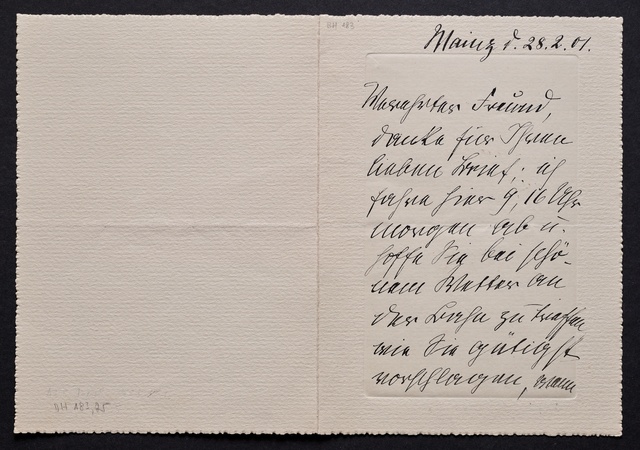 BH 183
Mainz d. 28.2.01.
Verehrter Freund,
danke für Ihren
lieben Brief; ich
fahre hier 9,16 Uhr
morgen ab u.
hoffe Sie bei schö-
nem Wetter an
der Bahn zu treffen
wie Sie gütigst
vorschlagen,